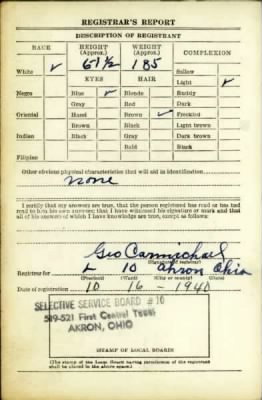 REGISTRAR'S REPORT
DESCRIPTION OF REGISTRANT
RACE HEIGHT (Approx.) WEIGHT (Approx.) COMPLEXION
White ✓ 5 1½ 185 Sallow
EYES HAIR Light ✓
Negro Blue ✓ Blonde Ruddy
Gray Red Dark
Oriental Hazel Brown ✓ Freckled
Brown Black Light brown
Indian Black Gray Dark brown
Bald Black
Filipino
Other obvious physical characteristics that will aid in identification
none
I certify that my answers are true; that the person registered has read or has had
read to him his own answers; that I have witnessed his signature or mark and that
all of his answers of which I have knowledge are true, except as follows:
Geo Carmichael
(Signature of registrar)
Registrar for L 10 Akron Ohio
(Precinct) (Ward) (City or county) (State)
Date of registration 10 - 16 - 1940
SELECTIVE SERVICE BOARD # 10
519-521 First Central Tower
AKRON, OHIO
STAMP OF LOCAL BOARD
(The stamp of the Local Board having jurisdiction of the registrant
shall be placed in the above space)